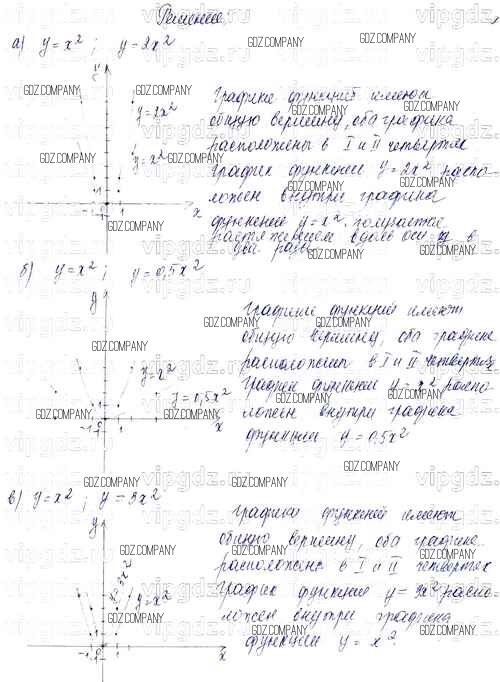 Решение.
а) y = x² ; y = 2x²
y
y = 2x²
y = x²
-1 1
x
Графики функций имеют
общую вершину, оба графика
расположены в I и II четвертях
График функции y = 2x² распо-
ложен внутри графика
функции y = x². получается
растяжением вдоль оси y в
два раза
б) y = x² ; y = 0,5x²
y
y = x²
y = 0,5x²
-1 1
x
Графики функций имеют
общую вершину, оба графика
расположены в I и II четвертях
График функции y = x² распо-
ложен внутри графика
функции y = 0,5x²
в) y = x² ; y = 3x²
y
y = 3x²
y = x²
-1 1
x
Графики функций имеют
общую вершину, оба графика
расположены в I и II четвертях
График функции y = 3x² распо-
ложен внутри графика
функции y = x².
GDZ.COMPANY
vipgdz.ru